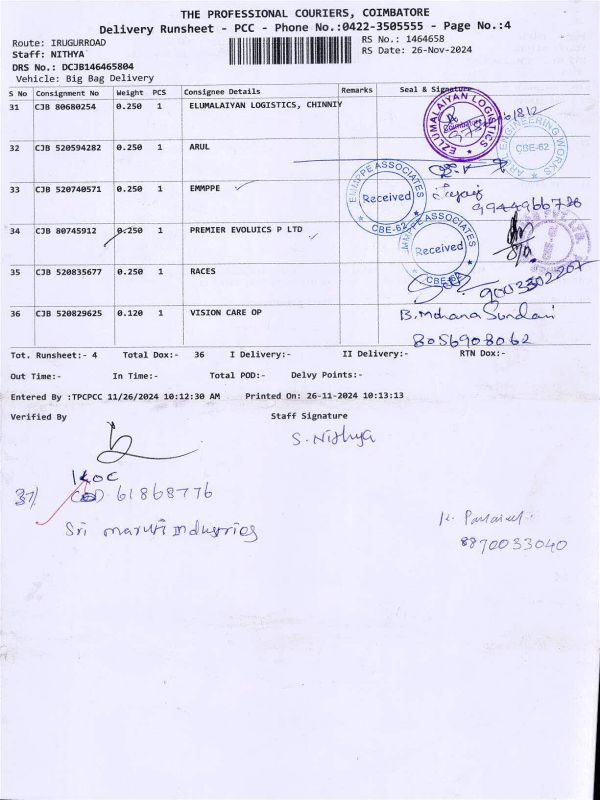 THE PROFESSIONAL COURIERS, COIMBATORE
Delivery Runsheet - PCC - Phone No.:0422-3505555 - Page No.:4
Route: IRUGURROAD
RS No.: 1464658
Staff: NITHYA
RS Date: 26-Nov-2024
DRS No.: DCJB146465804
Vehicle: Big Bag Delivery
S No Consignment No Weight PCS Consignee Details Remarks Seal & Signature
31 CJB 80680254 0.250 1 ELUMALAIYAN LOGISTICS, CHINNIY
EZLUMALAIYAN LOGISTICS
Coimbatore
32 CJB 520594282 0.250 1 ARUL
ENGINEERING WORKS
CBE-62
33 CJB 520740571 0.250 1 EMMPPE
EMMPPE ASSOCIATES
Received
CBE-62
9944966736
34 CJB 80745912 0.250 1 PREMIER EVOLUICS P LTD
EMMPPE ASSOCIATES
Received
CBE-62
35 CJB 520835677 0.250 1 RACES
9003302207
36 CJB 520829625 0.120 1 VISION CARE OP
B. Mohana Sundari
8056908062
Tot. Runsheet:- 4 Total Dox:- 36 I Delivery:- II Delivery:- RTN Dox:-
Out Time:- In Time:- Total POD:- Delvy Points:-
Entered By :TPCPCC 11/26/2024 10:12:30 AM Printed On: 26-11-2024 10:13:13
Verified By Staff Signature
S. Nithya
KOC
37) 61868776
Sri maruti Industries
8870033040